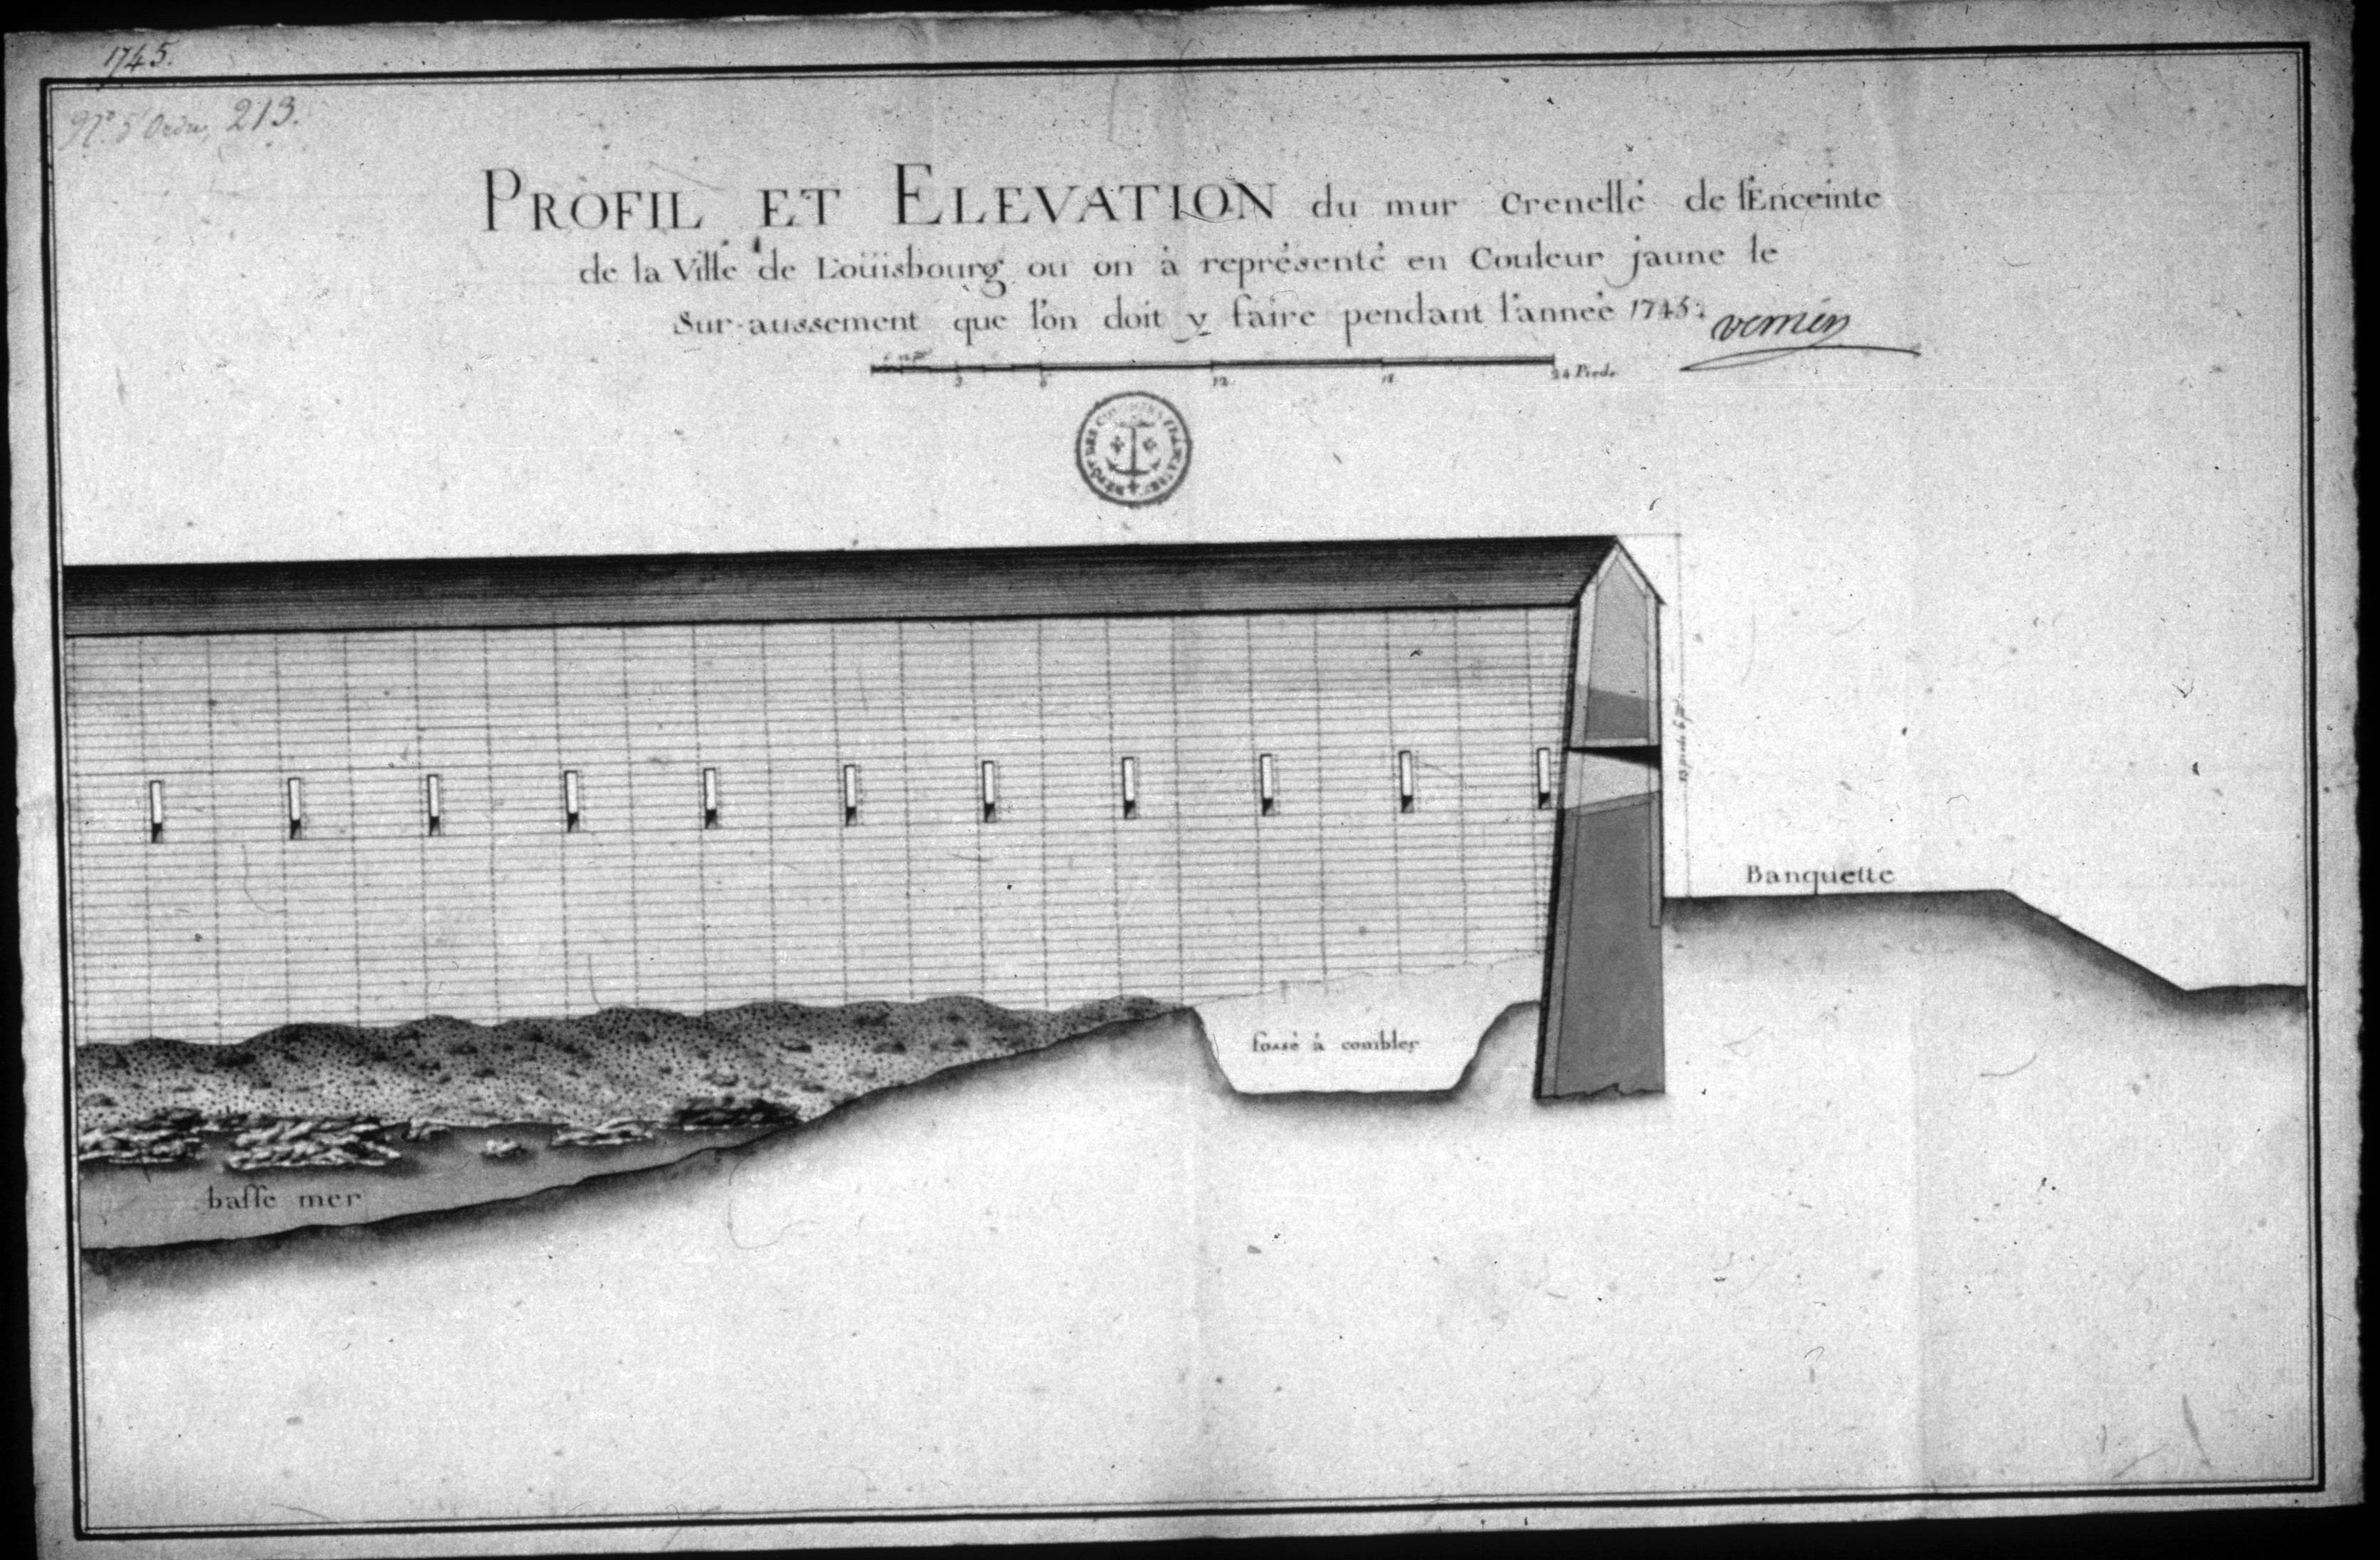 1745.
N.° d'Ordre, 213.
PROFIL ET ELEVATION du mur crenellé de l'Enceinte
de la Ville de Loüisbourg ou on à représenté en Couleur jaune le
Sur-aussement que l'on doit y faire pendant l'anneé 1745.
verrier
3 6 12 18 24 Pieds
DÉPÔT DES COLONIES
Banquette
fossé à combler
basse mer